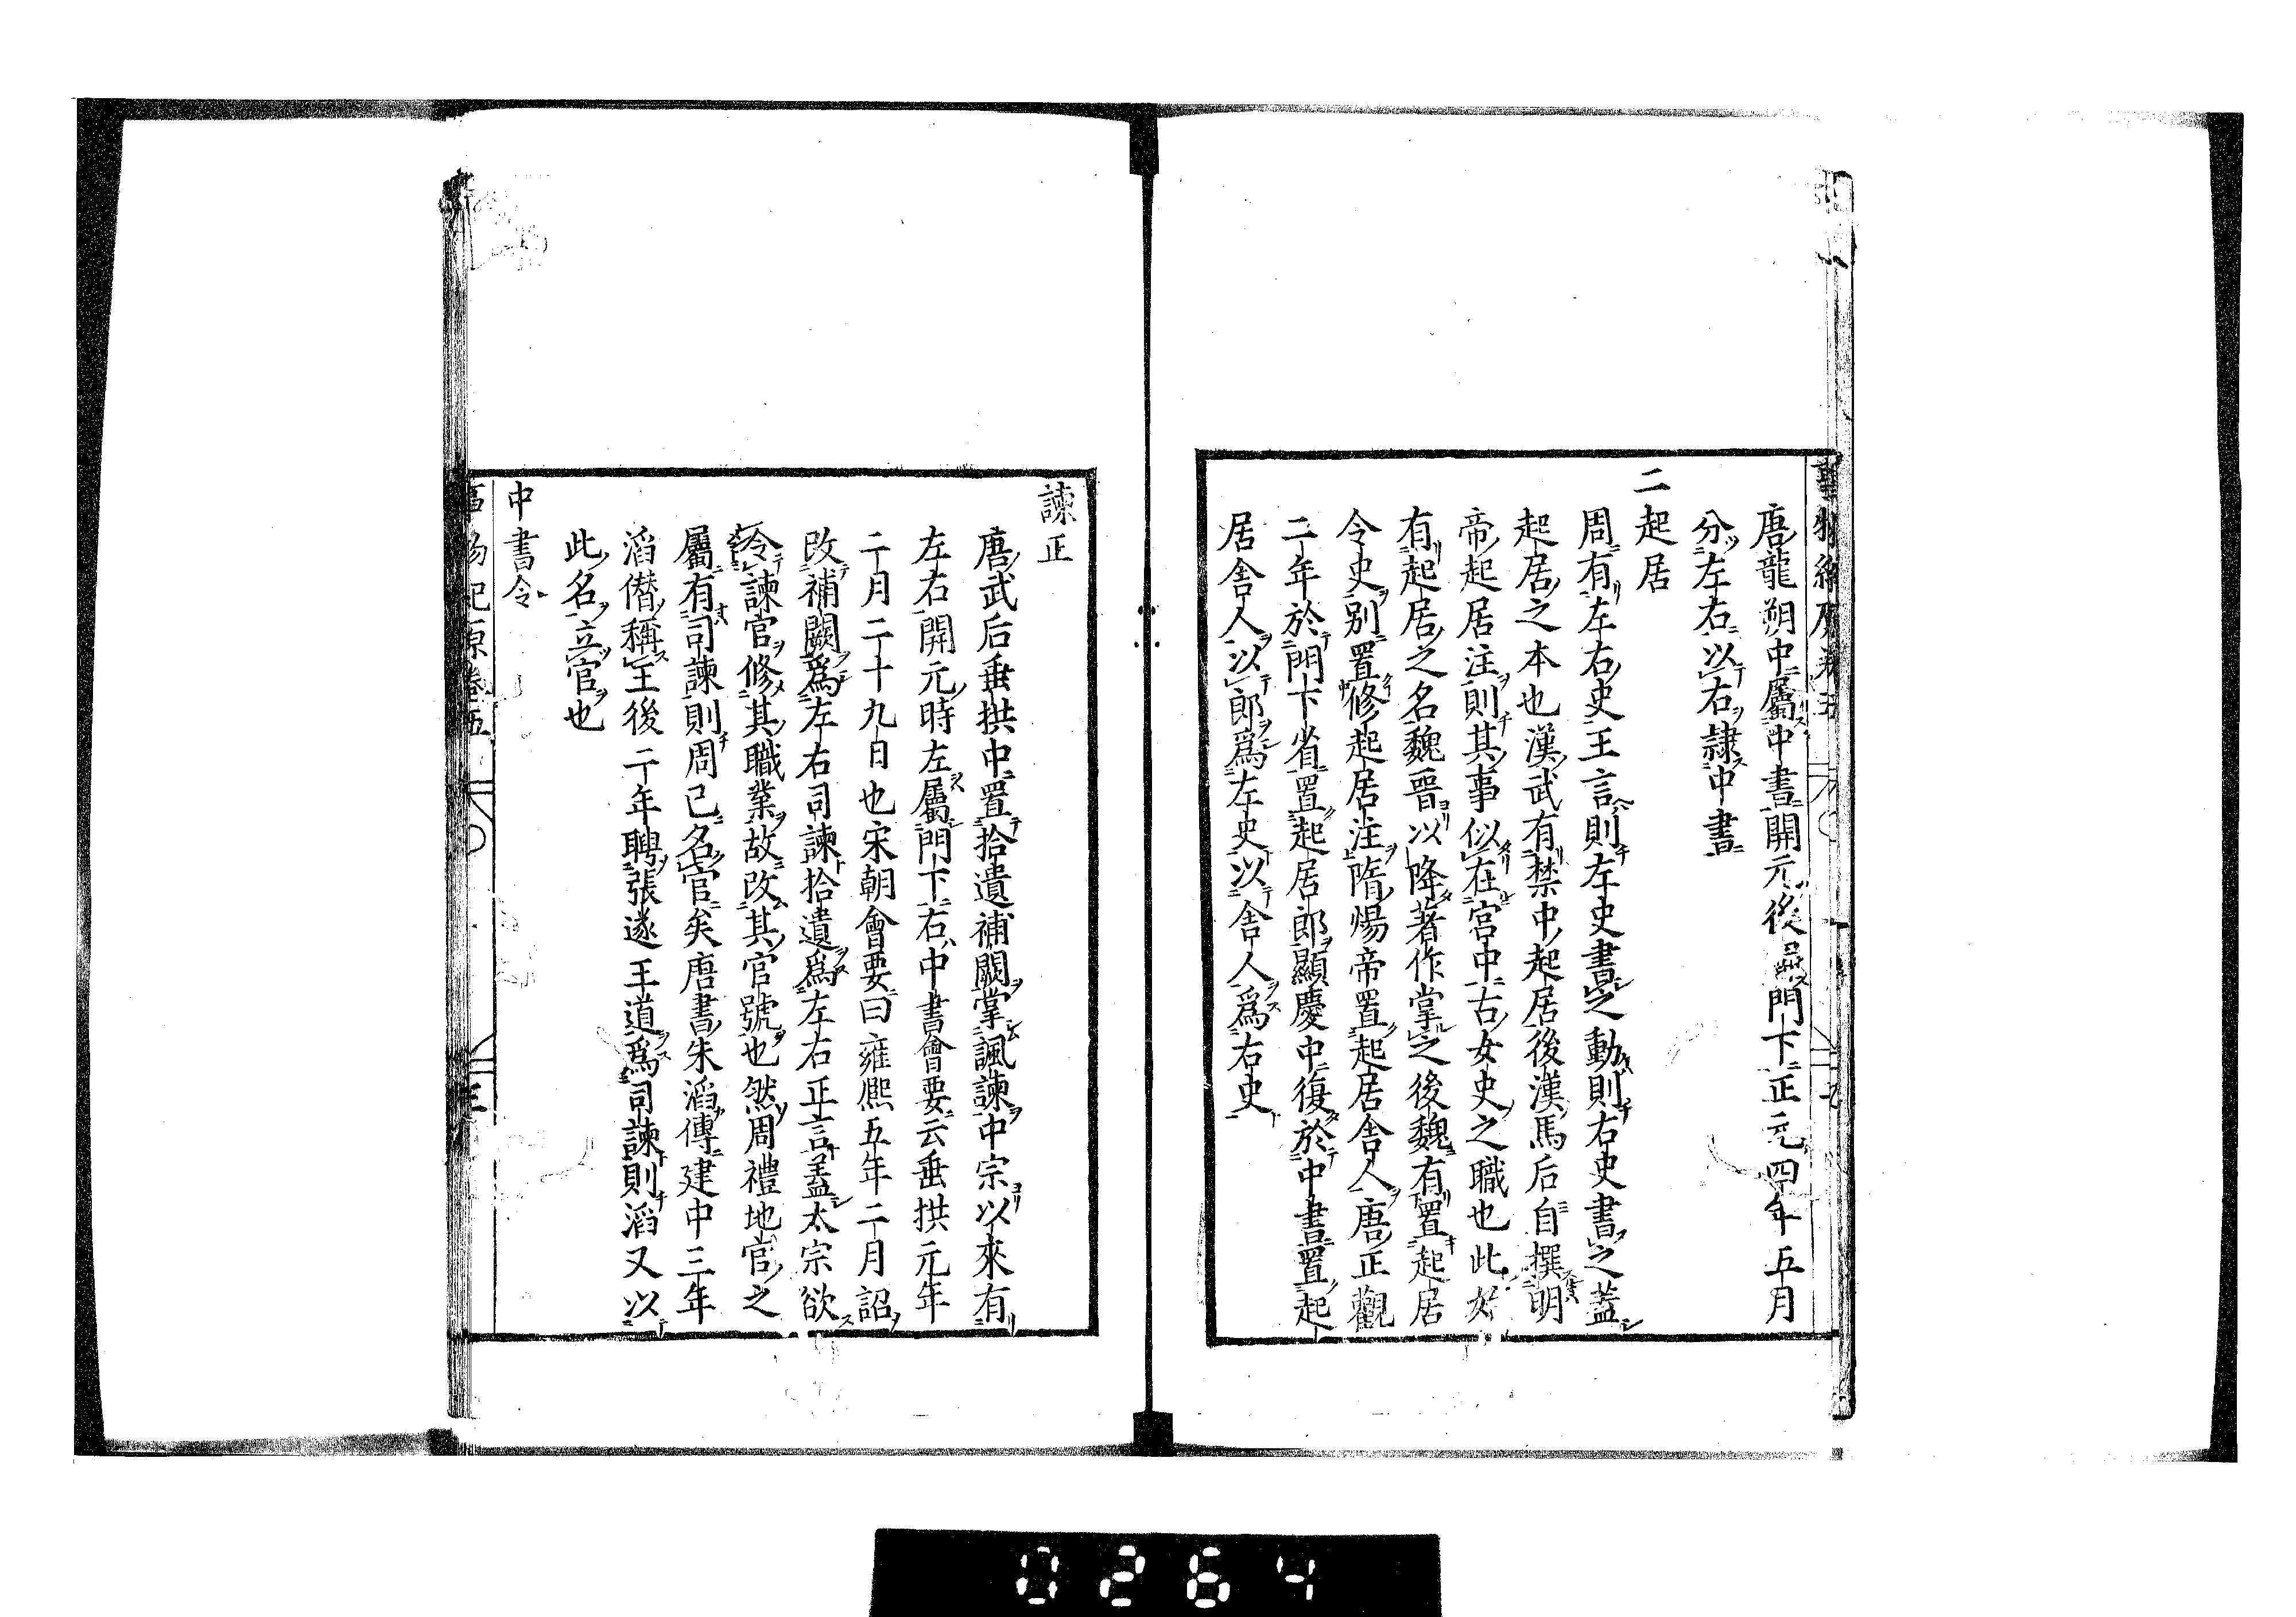 唐龍朔中屬中書開元後屬門下正元四年五月
分左右以右隷中書
二起居
周有左右史王言則左史書之動則右史書之蓋
起居之本也漢武有禁中起居後漢馬后自撰明
帝起居注則其事似在宮中古女史之職也此始
有起居之名魏晉以降著作掌之後魏有置起居
令史别置修起居注隋煬帝置起居舎人唐正觀
二年於門下省置起居郎顯慶中復於中書置起
居舎人以郎爲左史以舎人爲右史
諫正
唐武后垂拱中置拾遺補闕掌諷諫中宗以來有
左右開元時左屬門下右中書會要云垂拱元年
二月二十九日也宋朝會要曰雍熙五年二月詔
改補闕爲左右司諫拾遺爲左右正言蓋太宗欲
令諫官修其職業故改其官號也然周禮地官之
屬有司諫則周已名官矣唐書朱滔傳建中三年
滔僣稱王後二年聘張遂王道爲司諫則滔又以
此名立官也
中書令
事物紀原卷五
三
0264